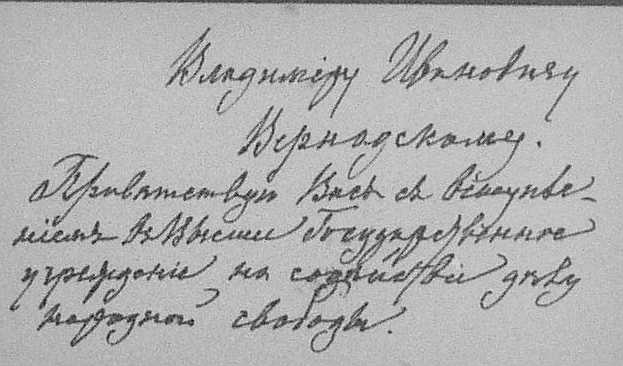 Владиміру Ивановичу
Вернадскому.
Привѣтствую Васъ съ вступле-
ніемъ въ Высшее Государственное
учрежденіе на содѣйствіе дѣлу
народной свободы.